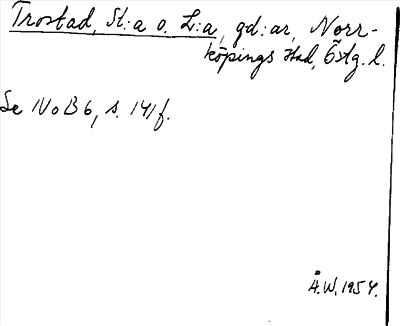 Trostad, St:a o. L:a, gd:ar, Norr-
köpings Had, Östg. l.
Se NoB 6, s. 141 f.
Å.W. 1954.